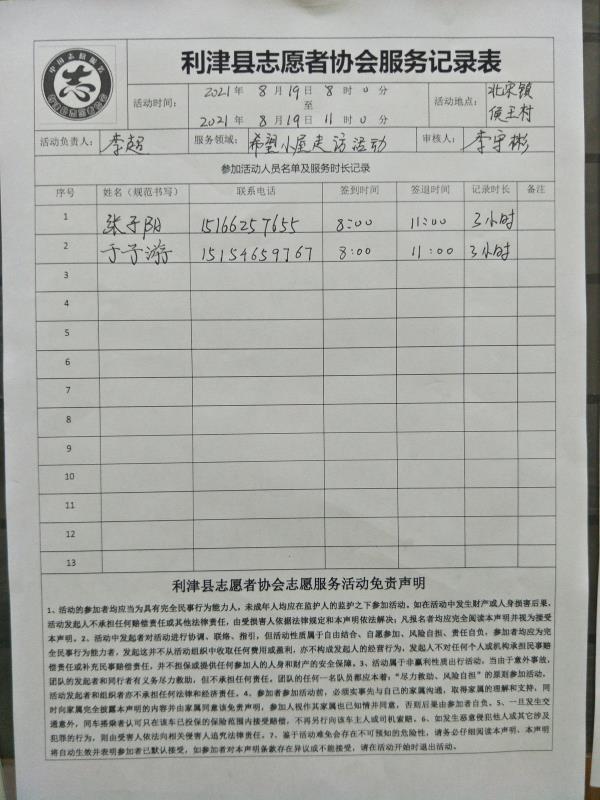 中国志愿服务
志
利津县志愿者协会服务记录表
活动时间: 2021年 8月19日 8时0分
至
2021年 8月19日 11时0分
活动地点: 北宋镇
侯王村
活动负责人: 李超 服务领域: 希望小屋走访活动 审核人: 李守彬
参加活动人员名单及服务时长记录
序号 姓名(规范书写) 联系电话 签到时间 签退时间 记录时长 备注
1 张子阳 15166257655 8:00 11:00 3小时
2 于子游 15154659767 8:00 11:00 3小时
3
4
5
6
7
8
9
10
11
12
13
利津县志愿者协会志愿服务活动免责声明
1、活动的参加者均应当为具有完全民事行为能力人,未成年人均应在监护人的监护之下参加活动。如在活动中发生财产或人身损害后果,
活动发起人不承担任何赔偿责任或其他法律责任,由受损害人依据法律规定和本声明依法解决;凡报名者均应完全阅读本声明并视为接受
本声明。2、活动中发起者对活动进行协调、联络、指引,但活动性质属于自由结合、自愿参加、风险自担、责任自负,参加者均应为完
全民事行为能力者,发起这并不从活动组织中收取任何费用或盈利,亦不构成发起人的经营行为,发起人不对任何个人或机构承担民事赔
偿责任或补充民事赔偿责任,并不担保或提供任何参加人的人身和财产的安全保障。3、活动属于非赢利性质出行活动。当由于意外事故,
团队的发起者和同行者有义务尽力救助,但不承担任何责任。团队的任何一名队员都应本着:“尽力救助、风险自担”的原则参加活动。
活动发起者和组织者亦不承担任何法律和经济责任。4、参加者参加活动前,必须实事先与自己的家属沟通,取得家属的理解和支持,同
时向家属完全披露本声明的内容并由家属同意该免责声明,参加人视作其家属也已知情并同意,否则后果由参加者自负。5、一旦发生交
通意外,同车搭乘者认可只在该车已投保的保险范围内接受赔偿,不再另行向该车主人或司机索赔。6、如发生恶意侵犯他人或其它涉及
犯罪的行为,则由受害人依法向相关侵害人追究法律责任。7、鉴于活动难免会存在不可预知的危险性,请务必仔细阅读本声明。本声明
将自动生效并表明参加者已默认接受,如参加者对本声明条款存在异议或不能接受,请在活动开始时退出活动。